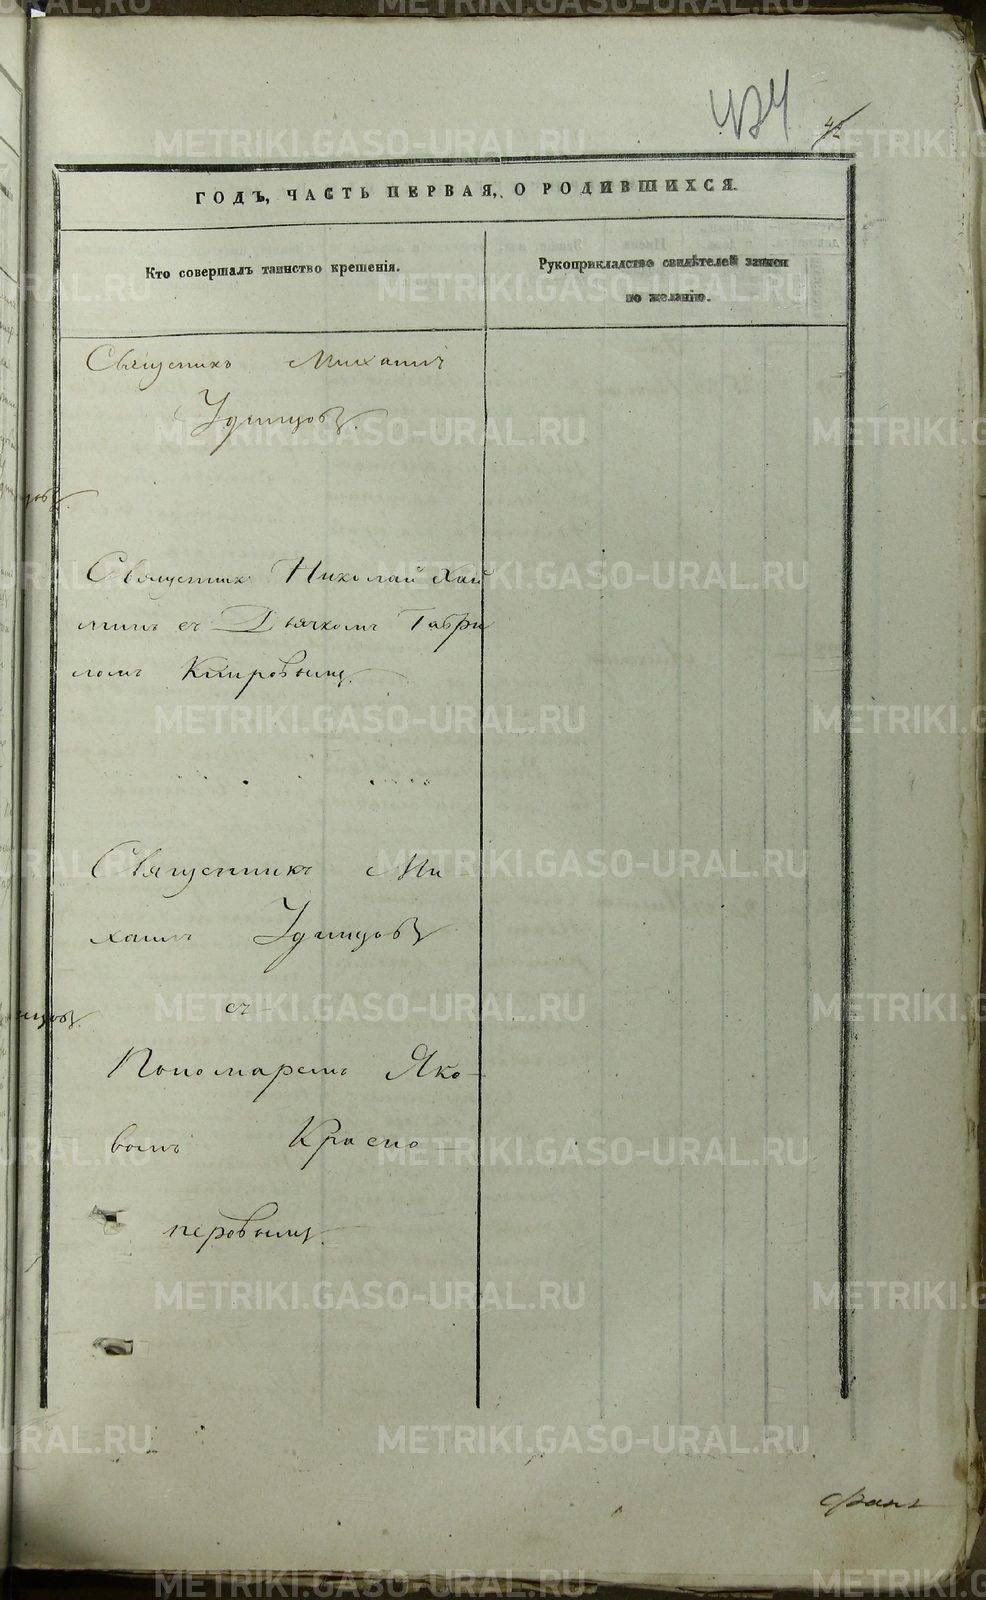 434
42
ГОДЪ, ЧАСТЬ ПЕРВАЯ, О РОДИВШИХСЯ.
Кто совершалъ таинство крещенія.
Рукоприкладство свидѣтелей записи
по желанію.
Священникъ Михаилъ
Удинцовъ.
Священникъ Николай Хай
минъ съ Дьячкомъ Гаври
ломъ Кировымъ.
Священникъ Ми
хаилъ Удинцовъ
съ
Пономаремъ Яко-
вомъ Красно
перовымъ.
METRIKI.GASO-URAL.RU